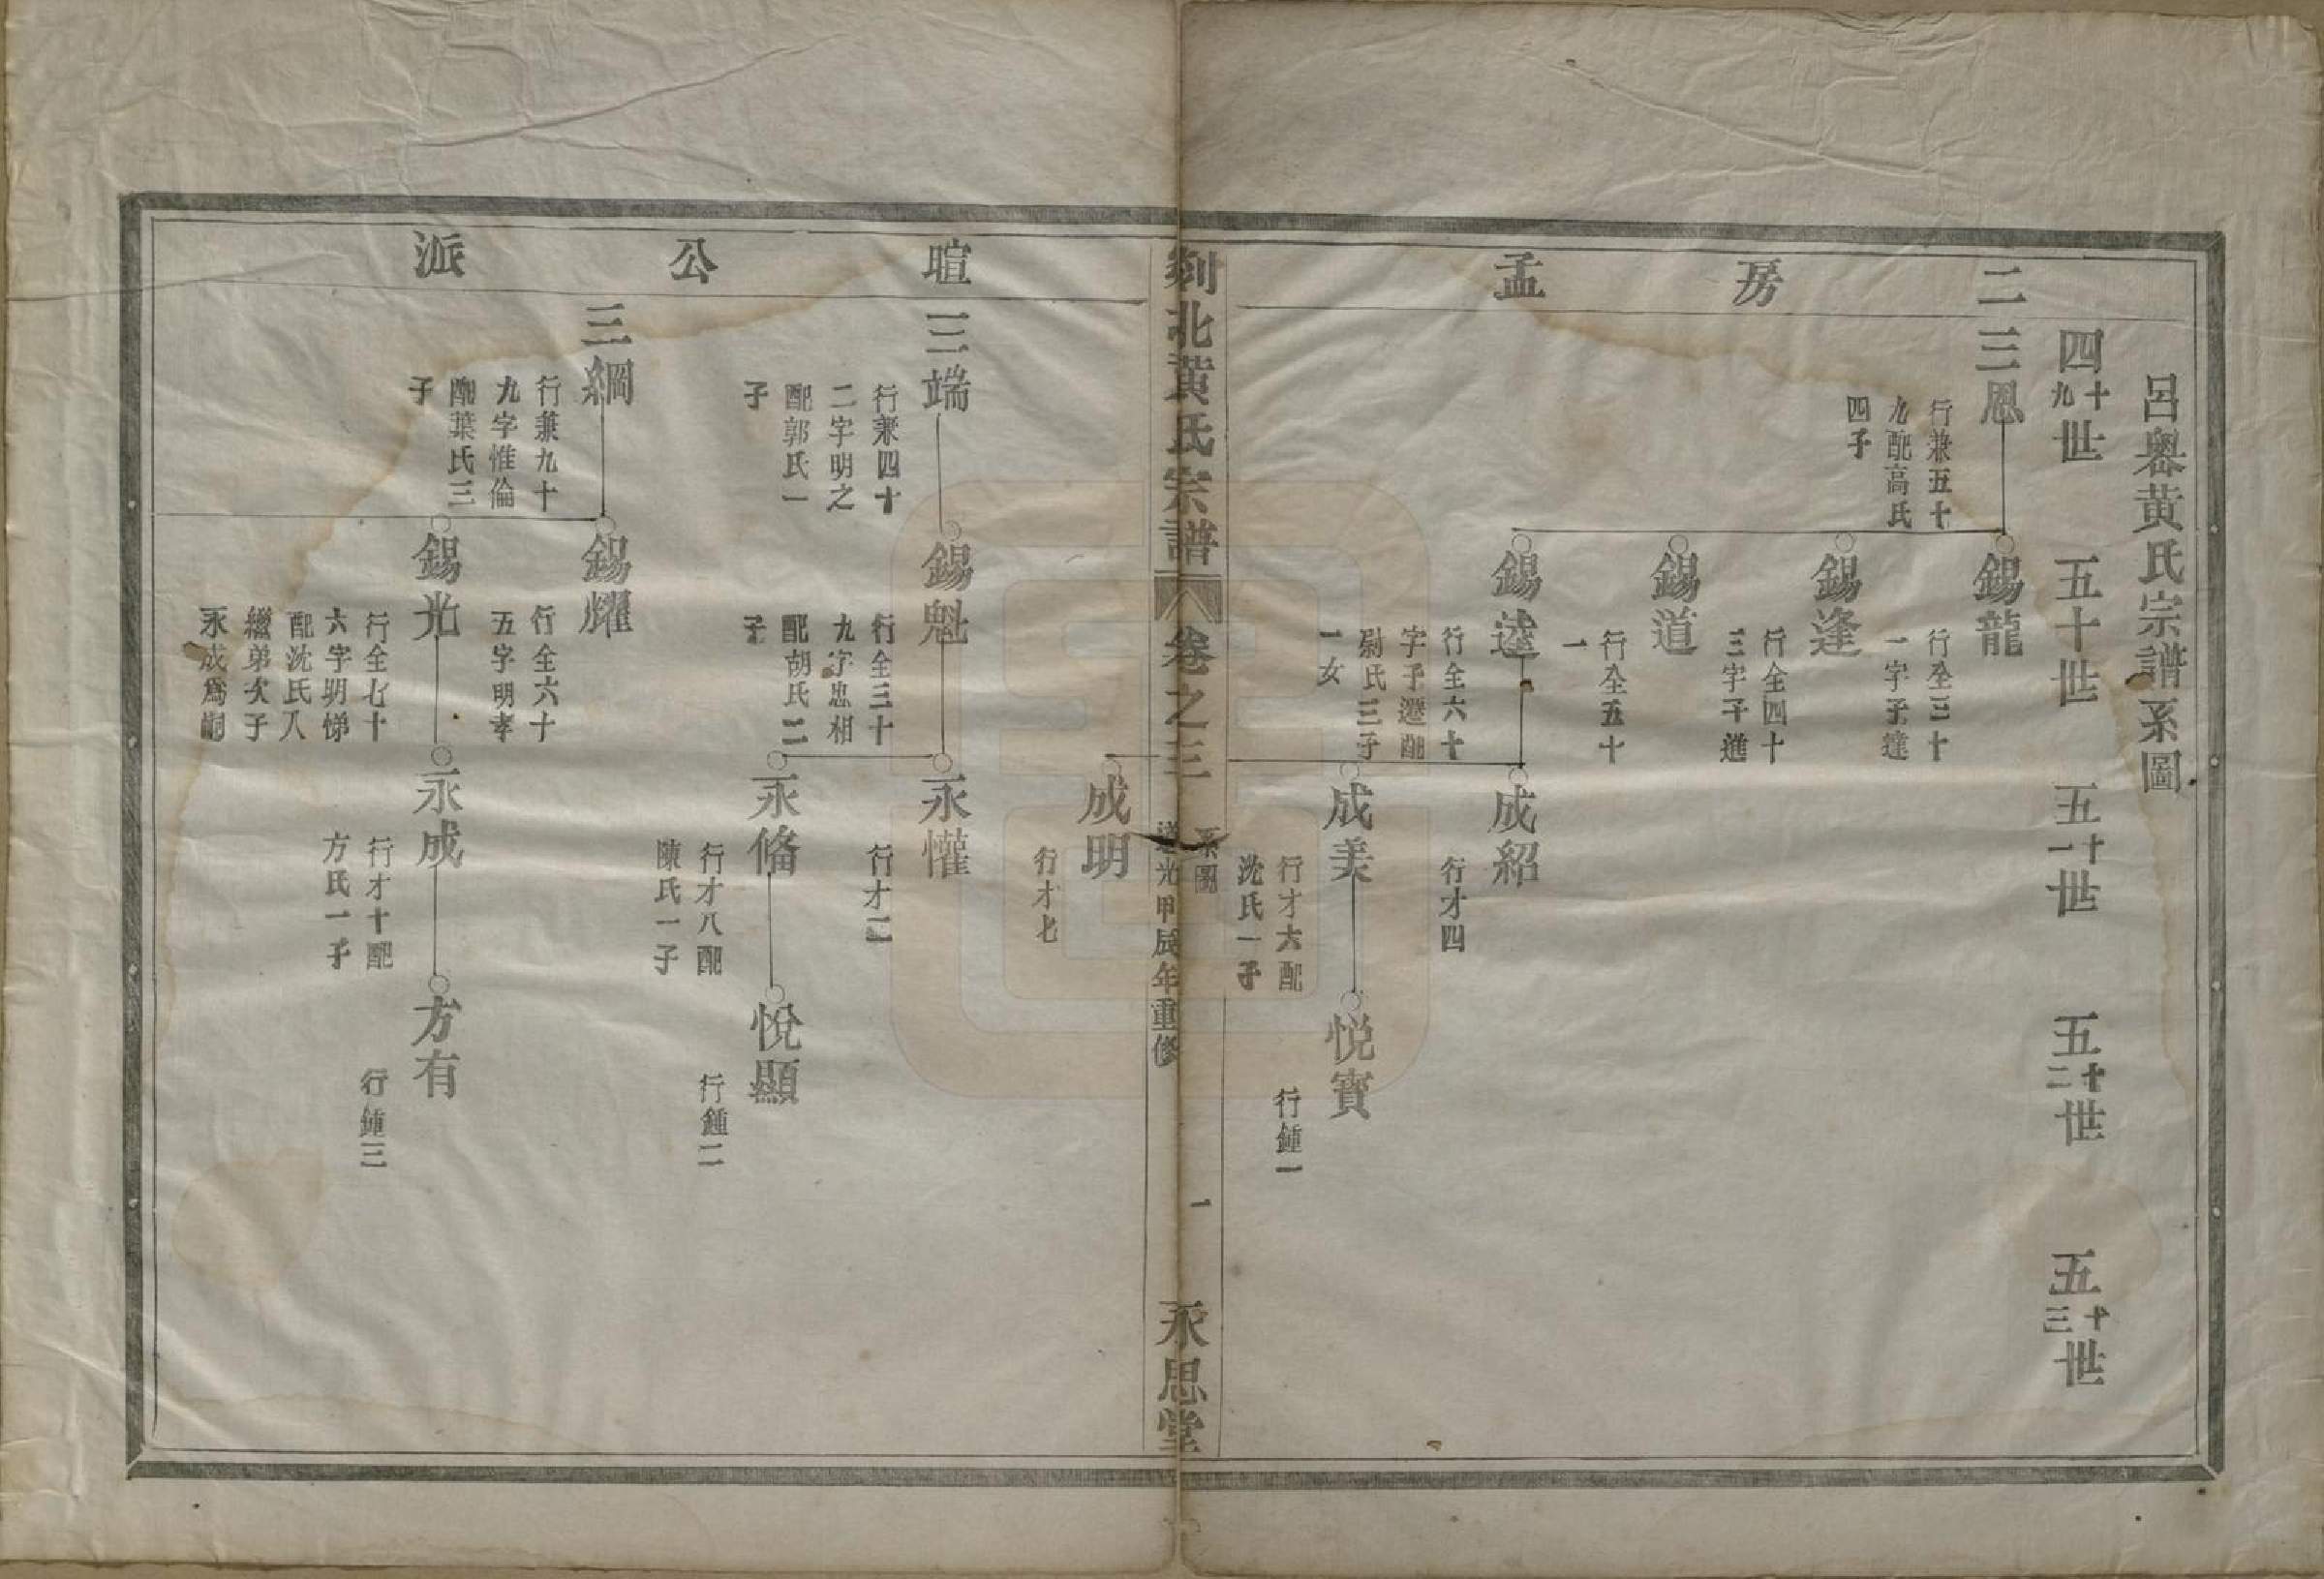 呂奧黃氏宗譜系圖
四十九世
五十世
五十一世
五十二世
五十三世
二房孟
三恩
行兼五十
九配高氏
四子
錫龍
行全三十
一字子達
錫逢
行全四十
三字子進
錫道
行全五十
一
錫逵
行全六十
字子遷配
尉氏三子
一女
成紹
行才四
成美
行才六配
沈氏一子
悅寶
行鍾一
剡北黃氏宗譜
卷之三
系圖
道光甲辰年重修
一
永思堂
成明
行才七
暄公派
三端
行兼四十
二字明之
配郭氏一
子
錫魁
行全三十
九字忠相
配胡氏二
子
永懽
行才二
永脩
行才八配
陳氏一子
悅顯
行鍾二
三綱
行兼九十
九字惟倫
配葉氏三
子
錫耀
行全六十
五字明孝
錫光
行全七十
六字明悌
配沈氏入
繼弟次子
永成為嗣
永成
行才十配
方氏一子
方有
行鍾三